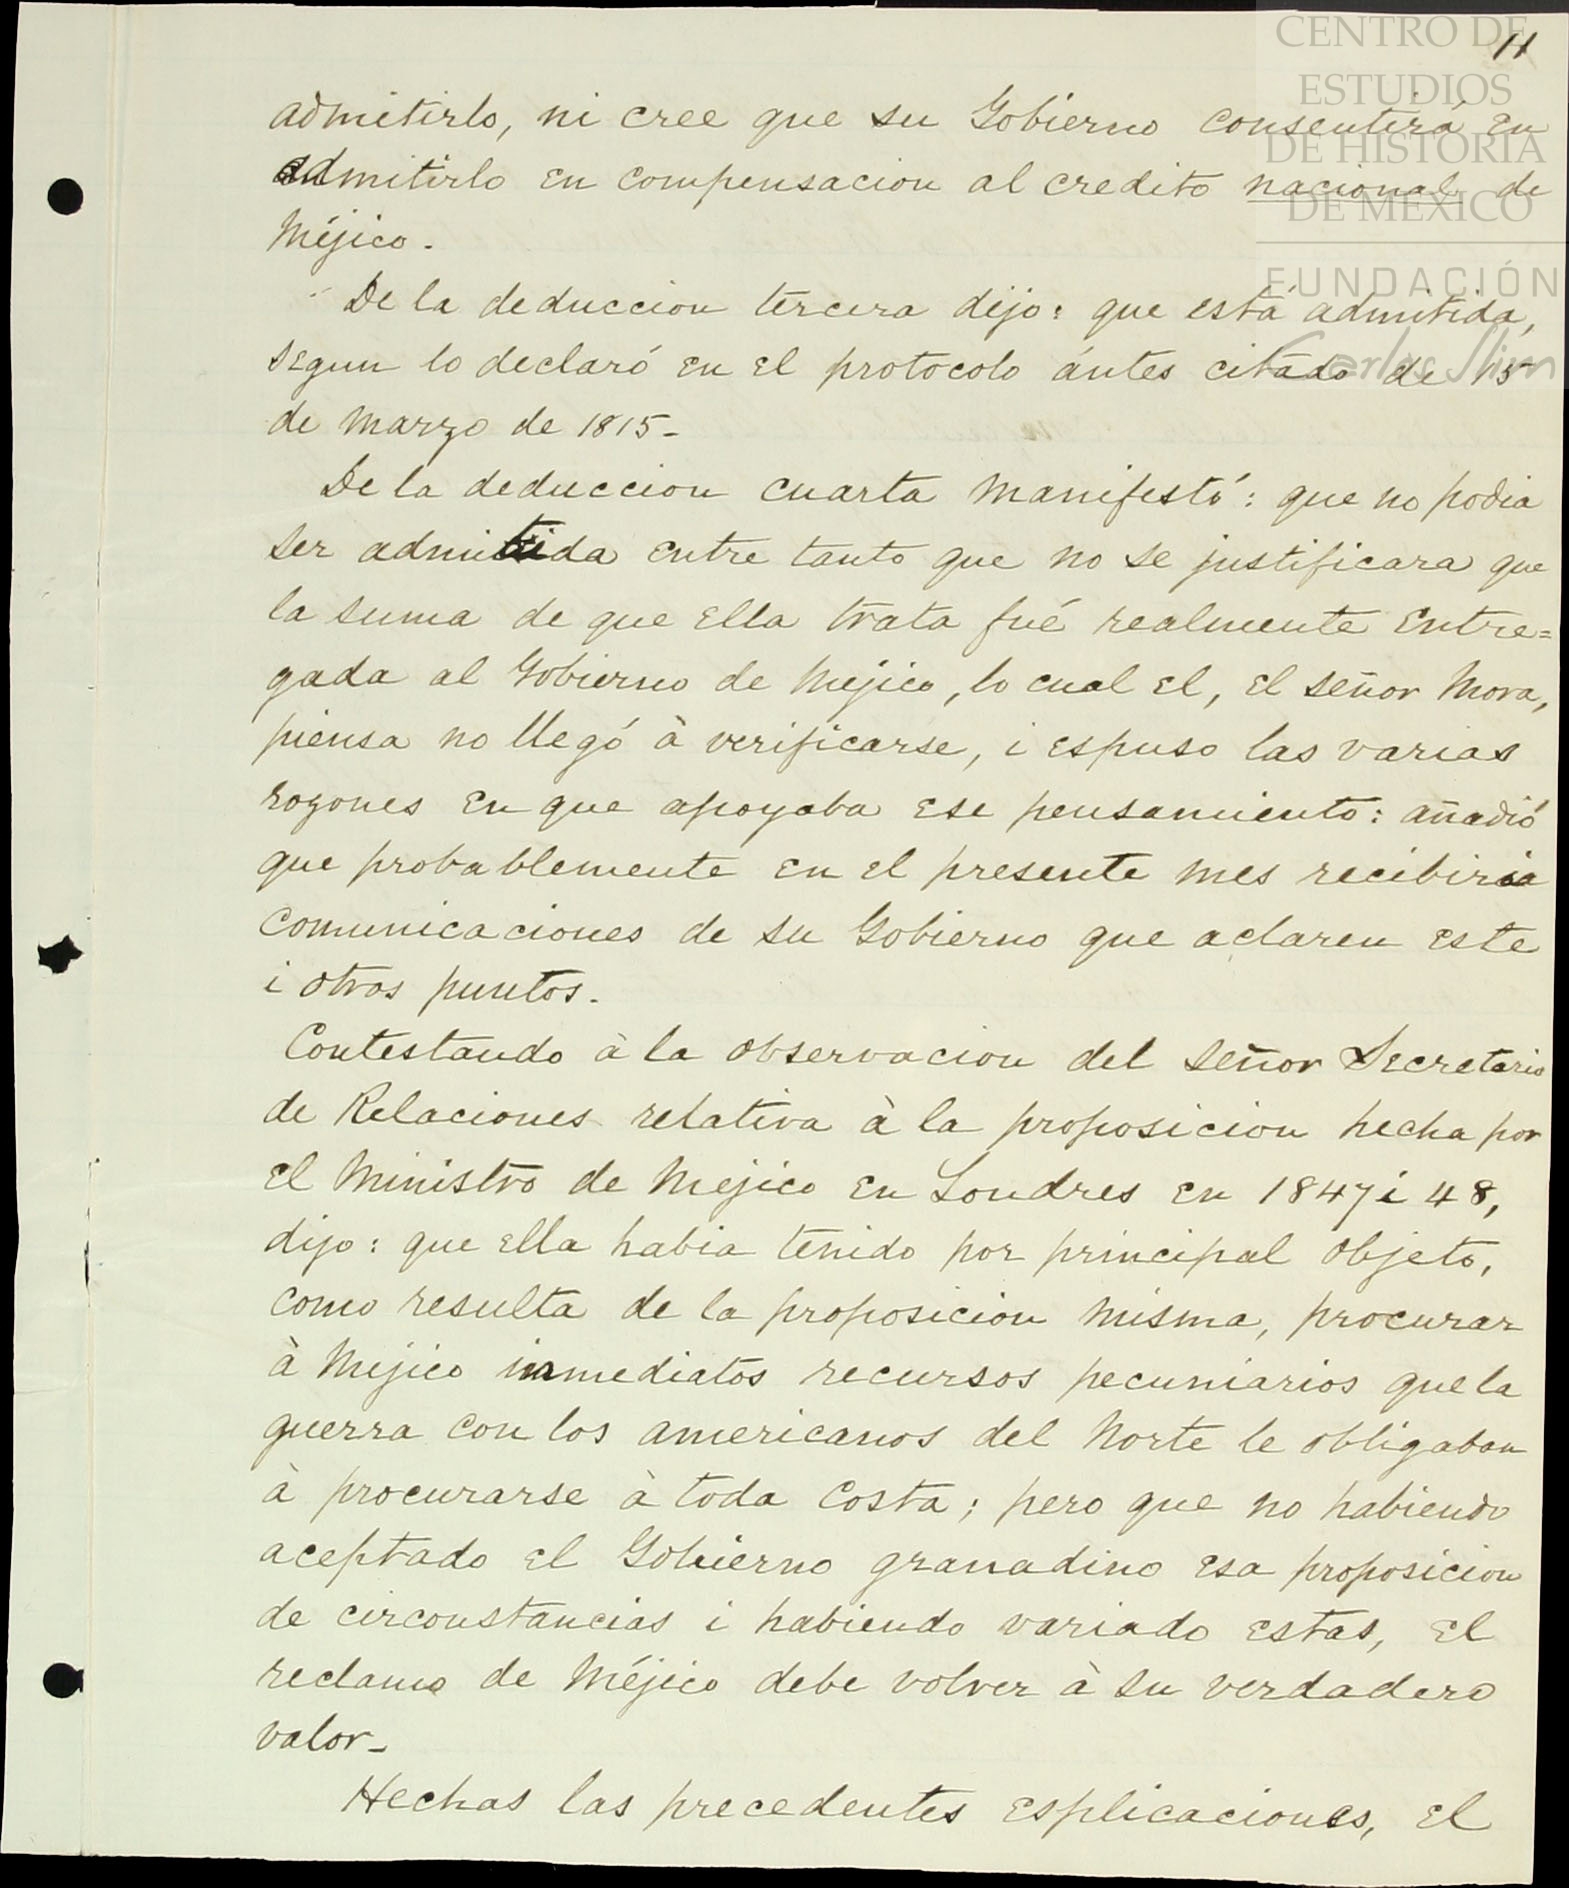 11
CENTRO DE
ESTUDIOS
DE HISTORIA
DE MÉXICO
FUNDACIÓN
Carlos Slim
admitirlo, ni cree que su Gobierno consentirá en
admitirlo en compensacion al credito nacional de
Méjico.
De la deduccion tercera dijo: que está admitida,
segun lo declaró en el protocolo ántes citado de 15
de Marzo de 1815-
De la deduccion cuarta manifestó: que no podia
ser admitida entre tanto que no se justificara que
la suma de que ella trata fué realmente entre=
gada al Gobierno de Mejico, lo cual el, el señor Mora,
piensa no llegó à verificarse, i espuso las varias
rozones en que apoyaba ese pensamiento: añadió
que probablemente en el presente mes recibiria
comunicaciones de su Gobierno que aclaren este
i otros puntos.
Contestando à la observacion del señor Secretario
de Relaciones relativa à la proposicion hecha por
el Ministro de Mejico en Londres en 1847 i 48,
dijo: que ella habia tenido por principal objeto,
como resulta de la proposicion misma, procurar
à Mejico inmediatos recursos pecuniarios que la
guerra con los americanos del Norte le obligaban
à procurarse à toda costa; pero que no habiendo
aceptado el Gobierno granadino esa proposicion
de circonstancias i habiendo variado estas, el
reclamo de Méjico debe volver à su verdadero
valor-
Hechas las precedentes esplicaciones, el